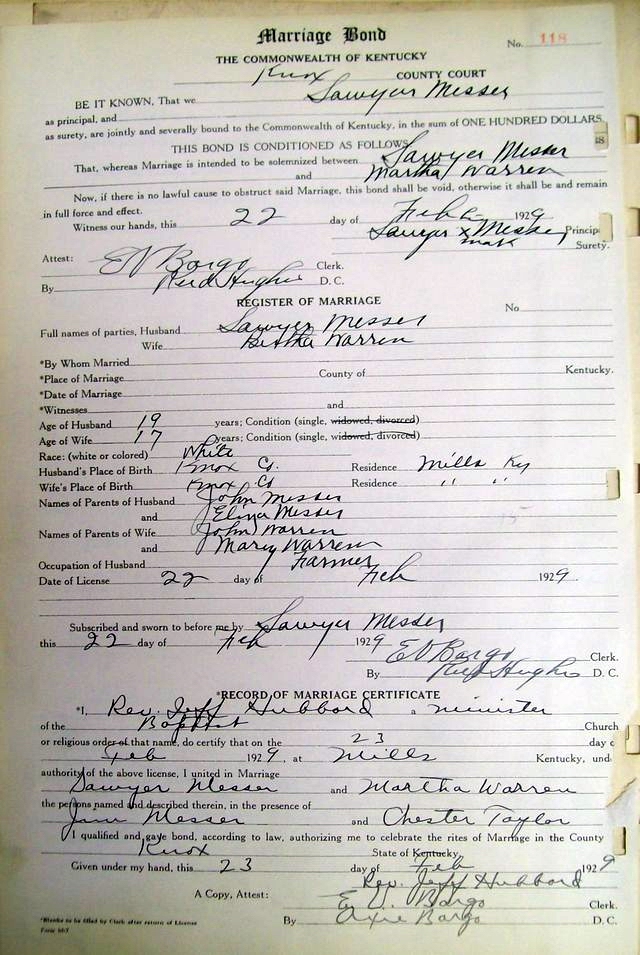 Marriage Bond
No. 118
THE COMMONWEALTH OF KENTUCKY
Knox COUNTY COURT
BE IT KNOWN, That we Sawyer Messer
as principal, and
as surety, are jointly and severally bound to the Commonwealth of Kentucky, in the sum of ONE HUNDRED DOLLARS.
THIS BOND IS CONDITIONED AS FOLLOWS
That, whereas Marriage is intended to be solemnized between Sawyer Messer
and Martha Warren
Now, if there is no lawful cause to obstruct said Marriage, this bond shall be void, otherwise it shall be and remain
in full force and effect.
Witness our hands, this 22 day of Feb 1929
Sawyer x Messer Principa
mark Surety.
Attest: EV Bargo Clerk.
By Reed Hughes D. C.
REGISTER OF MARRIAGE
No
Full names of parties, Husband Sawyer Messer
Wife Warren
*By Whom Married
*Place of Marriage County of Kentucky.
*Date of Marriage
*Witnesses and
Age of Husband 19 years; Condition (single, widowed, divorced)
Age of Wife 17 years; Condition (single, widowed, divorced)
Race: (white or colored) White
Husband's Place of Birth Knox Co. Residence Mills Ky
Wife's Place of Birth Knox Co Residence " "
Names of Parents of Husband John Messer
and Eliza Messer
Names of Parents of Wife John Warren
and Mary Warren
Occupation of Husband Farmer
Date of License 22 day of Feb 1929
Subscribed and sworn to before me by Sawyer Messer
this 22 day of Feb 1929
EV Bargo Clerk.
By Hughes D. C.
*RECORD OF MARRIAGE CERTIFICATE
*I, Rev. Jeff Hubbard a minister
of the Baptist Church
or religious order of that name, do certify that on the 23 day o
Feb 1929, at Mills Kentucky, und
authority of the above license, I united in Marriage
Sawyer Messer and Martha Warren
the persons named and described therein, in the presence of
Messer and Chester Taylor
I qualified and gave bond, according to law, authorizing me to celebrate the rites of Marriage in the County
Knox State of Kentucky
Given under my hand, this 23 day of Feb 1929
Rev. Jeff Hubbard
A Copy, Attest: E. V. Bargo Clerk.
By Bargo D. C.
*Blanks to be filled by Clerk after return of License